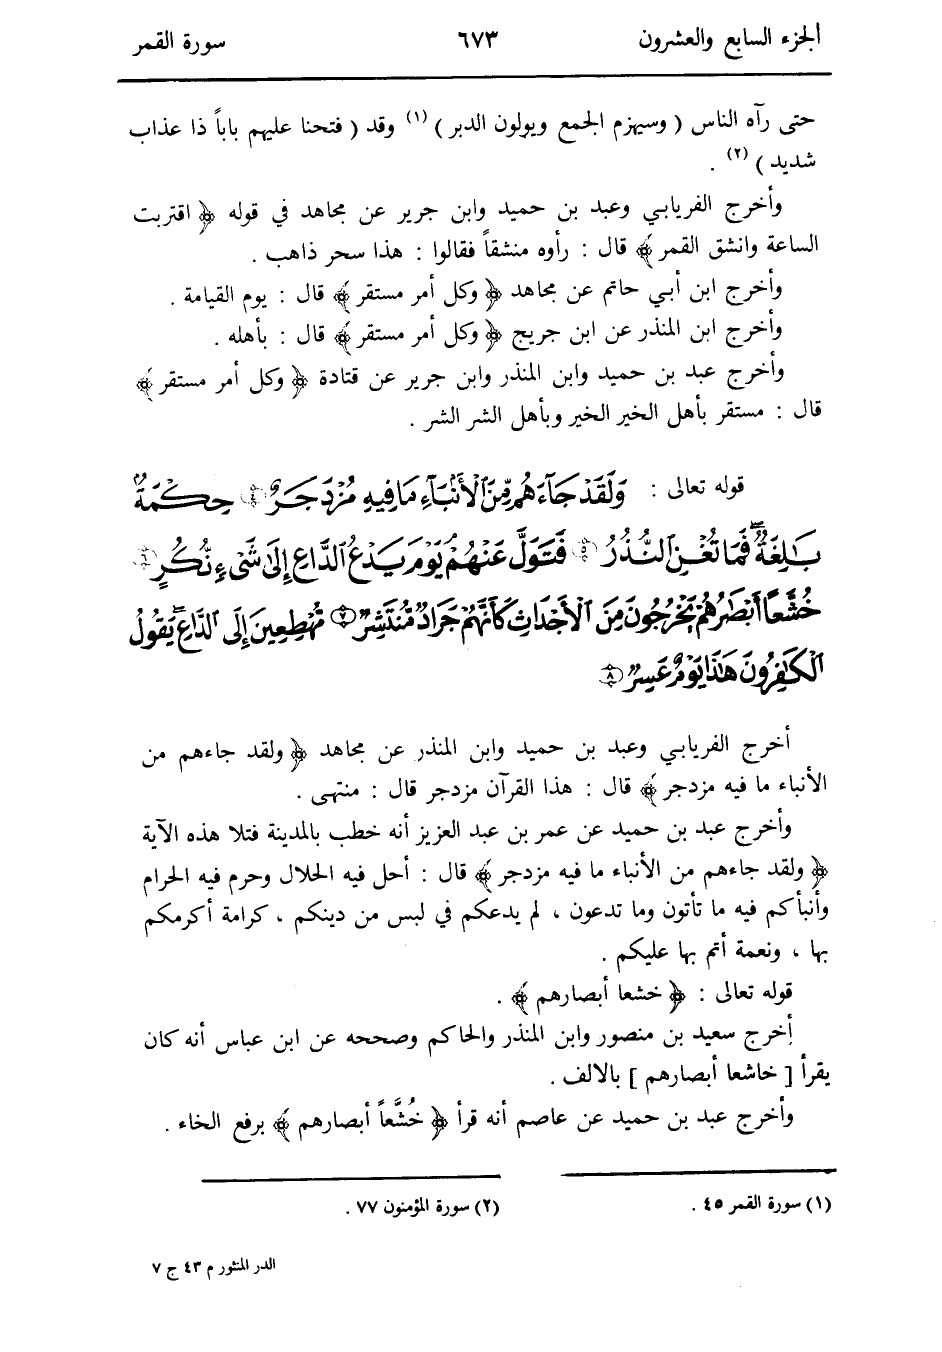 الجزء السابع والعشرون ٦٧٣ سورة القمر
حتى رآه الناس ( وسيهزم الجمع ويولون الدبر ) (١) وقد ( فتحنا عليهم باباً ذا عذاب
شديد ) (٢) .
وأخرج الفريابي وعبد بن حميد وابن جرير عن مجاهد في قوله ﴿ اقتربت
الساعة وانشق القمر ﴾ قال : رأوه منشقاً فقالوا : هذا سحر ذاهب .
وأخرج ابن أبي حاتم عن مجاهد ﴿ وكل أمر مستقر ﴾ قال : يوم القيامة .
وأخرج ابن المنذر عن ابن جريج ﴿ وكل أمر مستقر ﴾ قال : بأهله .
وأخرج عبد بن حميد وابن المنذر وابن جرير عن قتادة ﴿ وكل أمر مستقر ﴾
قال : مستقر بأهل الخير الخير وبأهل الشر الشر .
قوله تعالى : وَلَقَدْ جَاءَهُم مِّنَ ٱلْأَنۢبَآءِ مَا فِيهِ مُزْدَجَرٌ ٤ حِكْمَةٌۢ
بَٰلِغَةٌ ۖ فَمَا تُغْنِ ٱلنُّذُرُ ٥ فَتَوَلَّ عَنْهُمْ ۘ يَوْمَ يَدْعُ ٱلدَّاعِ إِلَىٰ شَىْءٍ نُّكُرٍ ٦
خُشَّعًا أَبْصَٰرُهُمْ يَخْرُجُونَ مِنَ ٱلْأَجْدَاثِ كَأَنَّهُمْ جَرَادٌ مُّنتَشِرٌ ٧ مُّهْطِعِينَ إِلَى ٱلدَّاعِ ۖ يَقُولُ
ٱلْكَٰفِرُونَ هَٰذَا يَوْمٌ عَسِرٌ ٨
أخرج الفريابي وعبد بن حميد وابن المنذر عن مجاهد ﴿ ولقد جاءهم من
الأنباء ما فيه مزدجر ﴾ قال : هذا القرآن مزدجر قال : منتهى .
وأخرج عبد بن حميد عن عمر بن عبد العزيز أنه خطب بالمدينة فتلا هذه الآية
﴿ ولقد جاءهم من الأنباء ما فيه مزدجر ﴾ قال : أحل فيه الحلال وحرم فيه الحرام
وأنبأكم فيه ما تأتون وما تدعون ، لم يدعكم في لبس من دينكم ، كرامة أكرمكم
بها ، ونعمة أتم بها عليكم .
قوله تعالى : ﴿ خشعا أبصارهم ﴾ .
أخرج سعيد بن منصور وابن المنذر والحاكم وصححه عن ابن عباس أنه كان
يقرأ [ خاشعا أبصارهم ] بالالف .
وأخرج عبد بن حميد عن عاصم أنه قرأ ﴿ خُشَّعاً أبصارهم ﴾ برفع الخاء .
(١) سورة القمر ٤٥ . (٢) سورة المؤمنون ٧٧ .
الدر المنثور م ٤٣ ج ٧